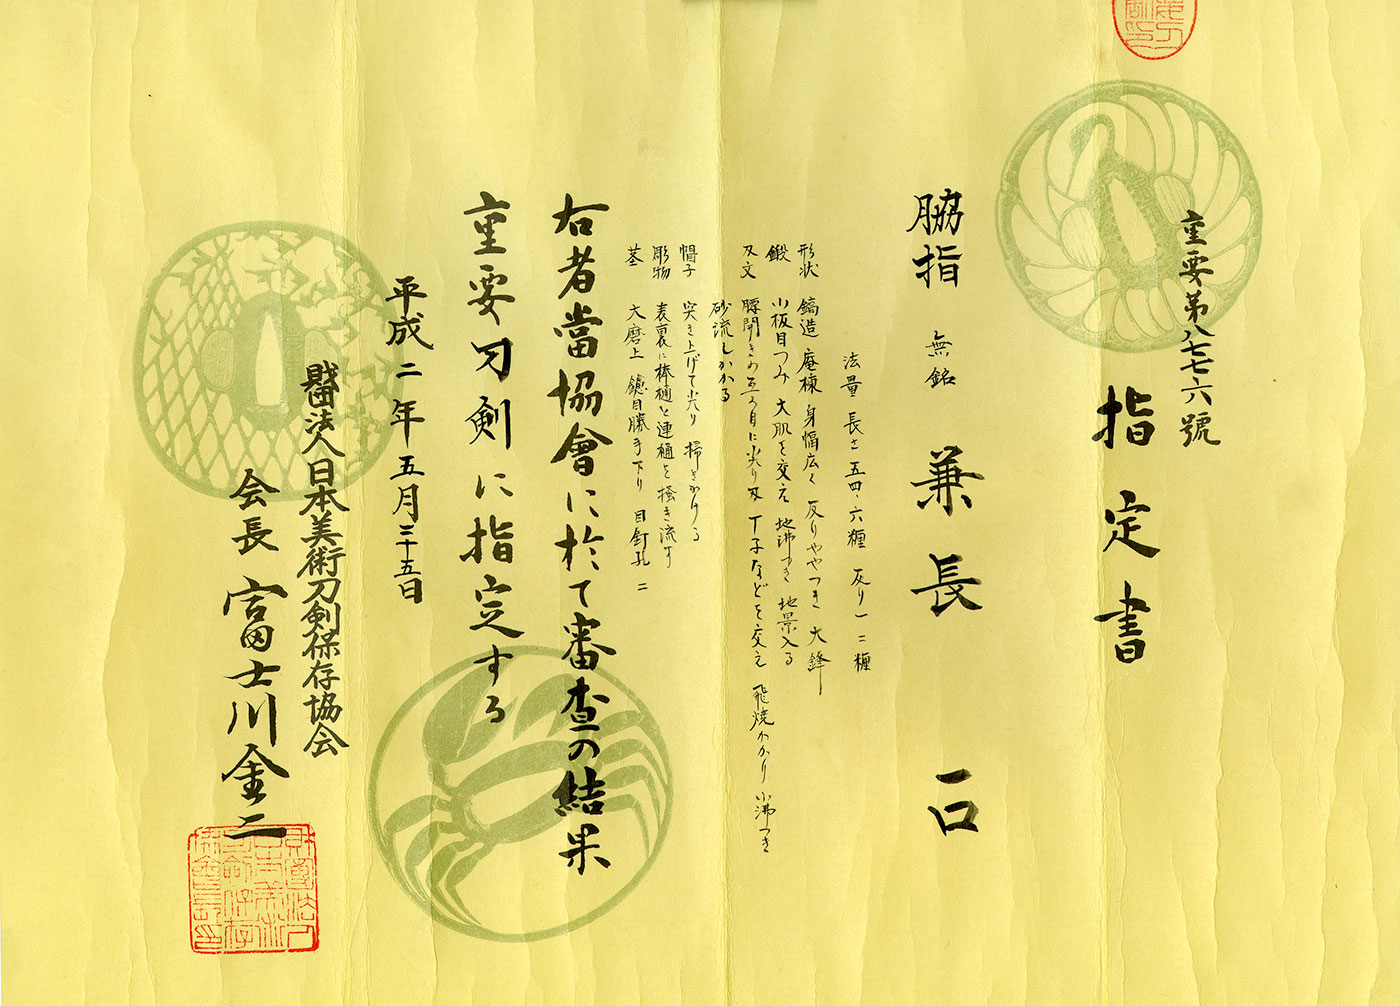 重要第八七七六號
指定書
脇指 無銘 兼長 一口
法量 長さ 五四・六糎 反り 一・二糎
形状 鎬造 庵棟 身幅広く 反りややつき 大鋒
鍛 小板目つみ 大肌を交え 地沸つき 地景入る
刃文 腰開きの互の目に尖り刃 丁子などを交え 飛焼かかり 小沸つき
砂流しかかる
帽子 突き上げて尖り 掃きかける
彫物 表裏に棒樋と連樋を掻き流す
茎 大磨上 鑢目勝手下り 目釘孔二
右者當協會に於て審査の結果
重要刀剣に指定する
平成二年五月二十五日
財団法人日本美術刀剣保存協会
会長 富士川金二